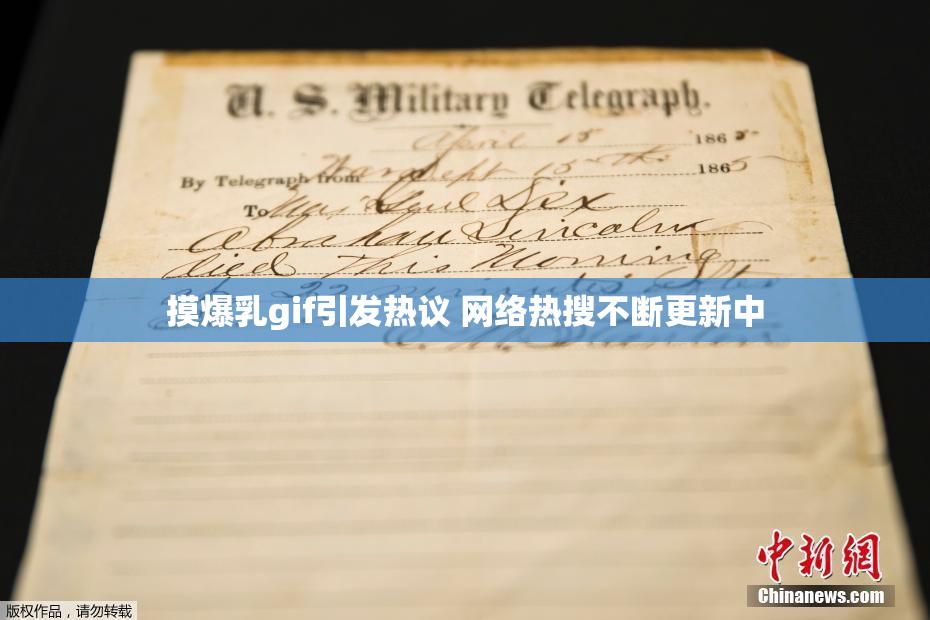 U. S. Military Telegraph.
April 15 1865
By Telegraph from War Dept 15th 1865
To Maj Genl Dix
Abraham Lincoln
died This Morning
at 22 minutes after
摸爆乳gif引发热议 网络热搜不断更新中
E. M. Stanton
中新网
Chinanews.com
版权作品，请勿转载